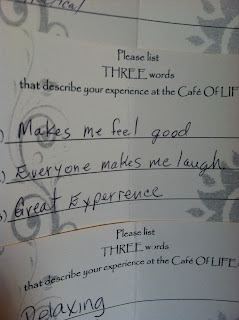 Please list
THREE words
that describe your experience at the Café Of LIF
) Makes me feel good
) Everyone makes me laugh
) Great Experience
Please list
THREE words
that describe your experience at the Café Of LIFE
Relaxing